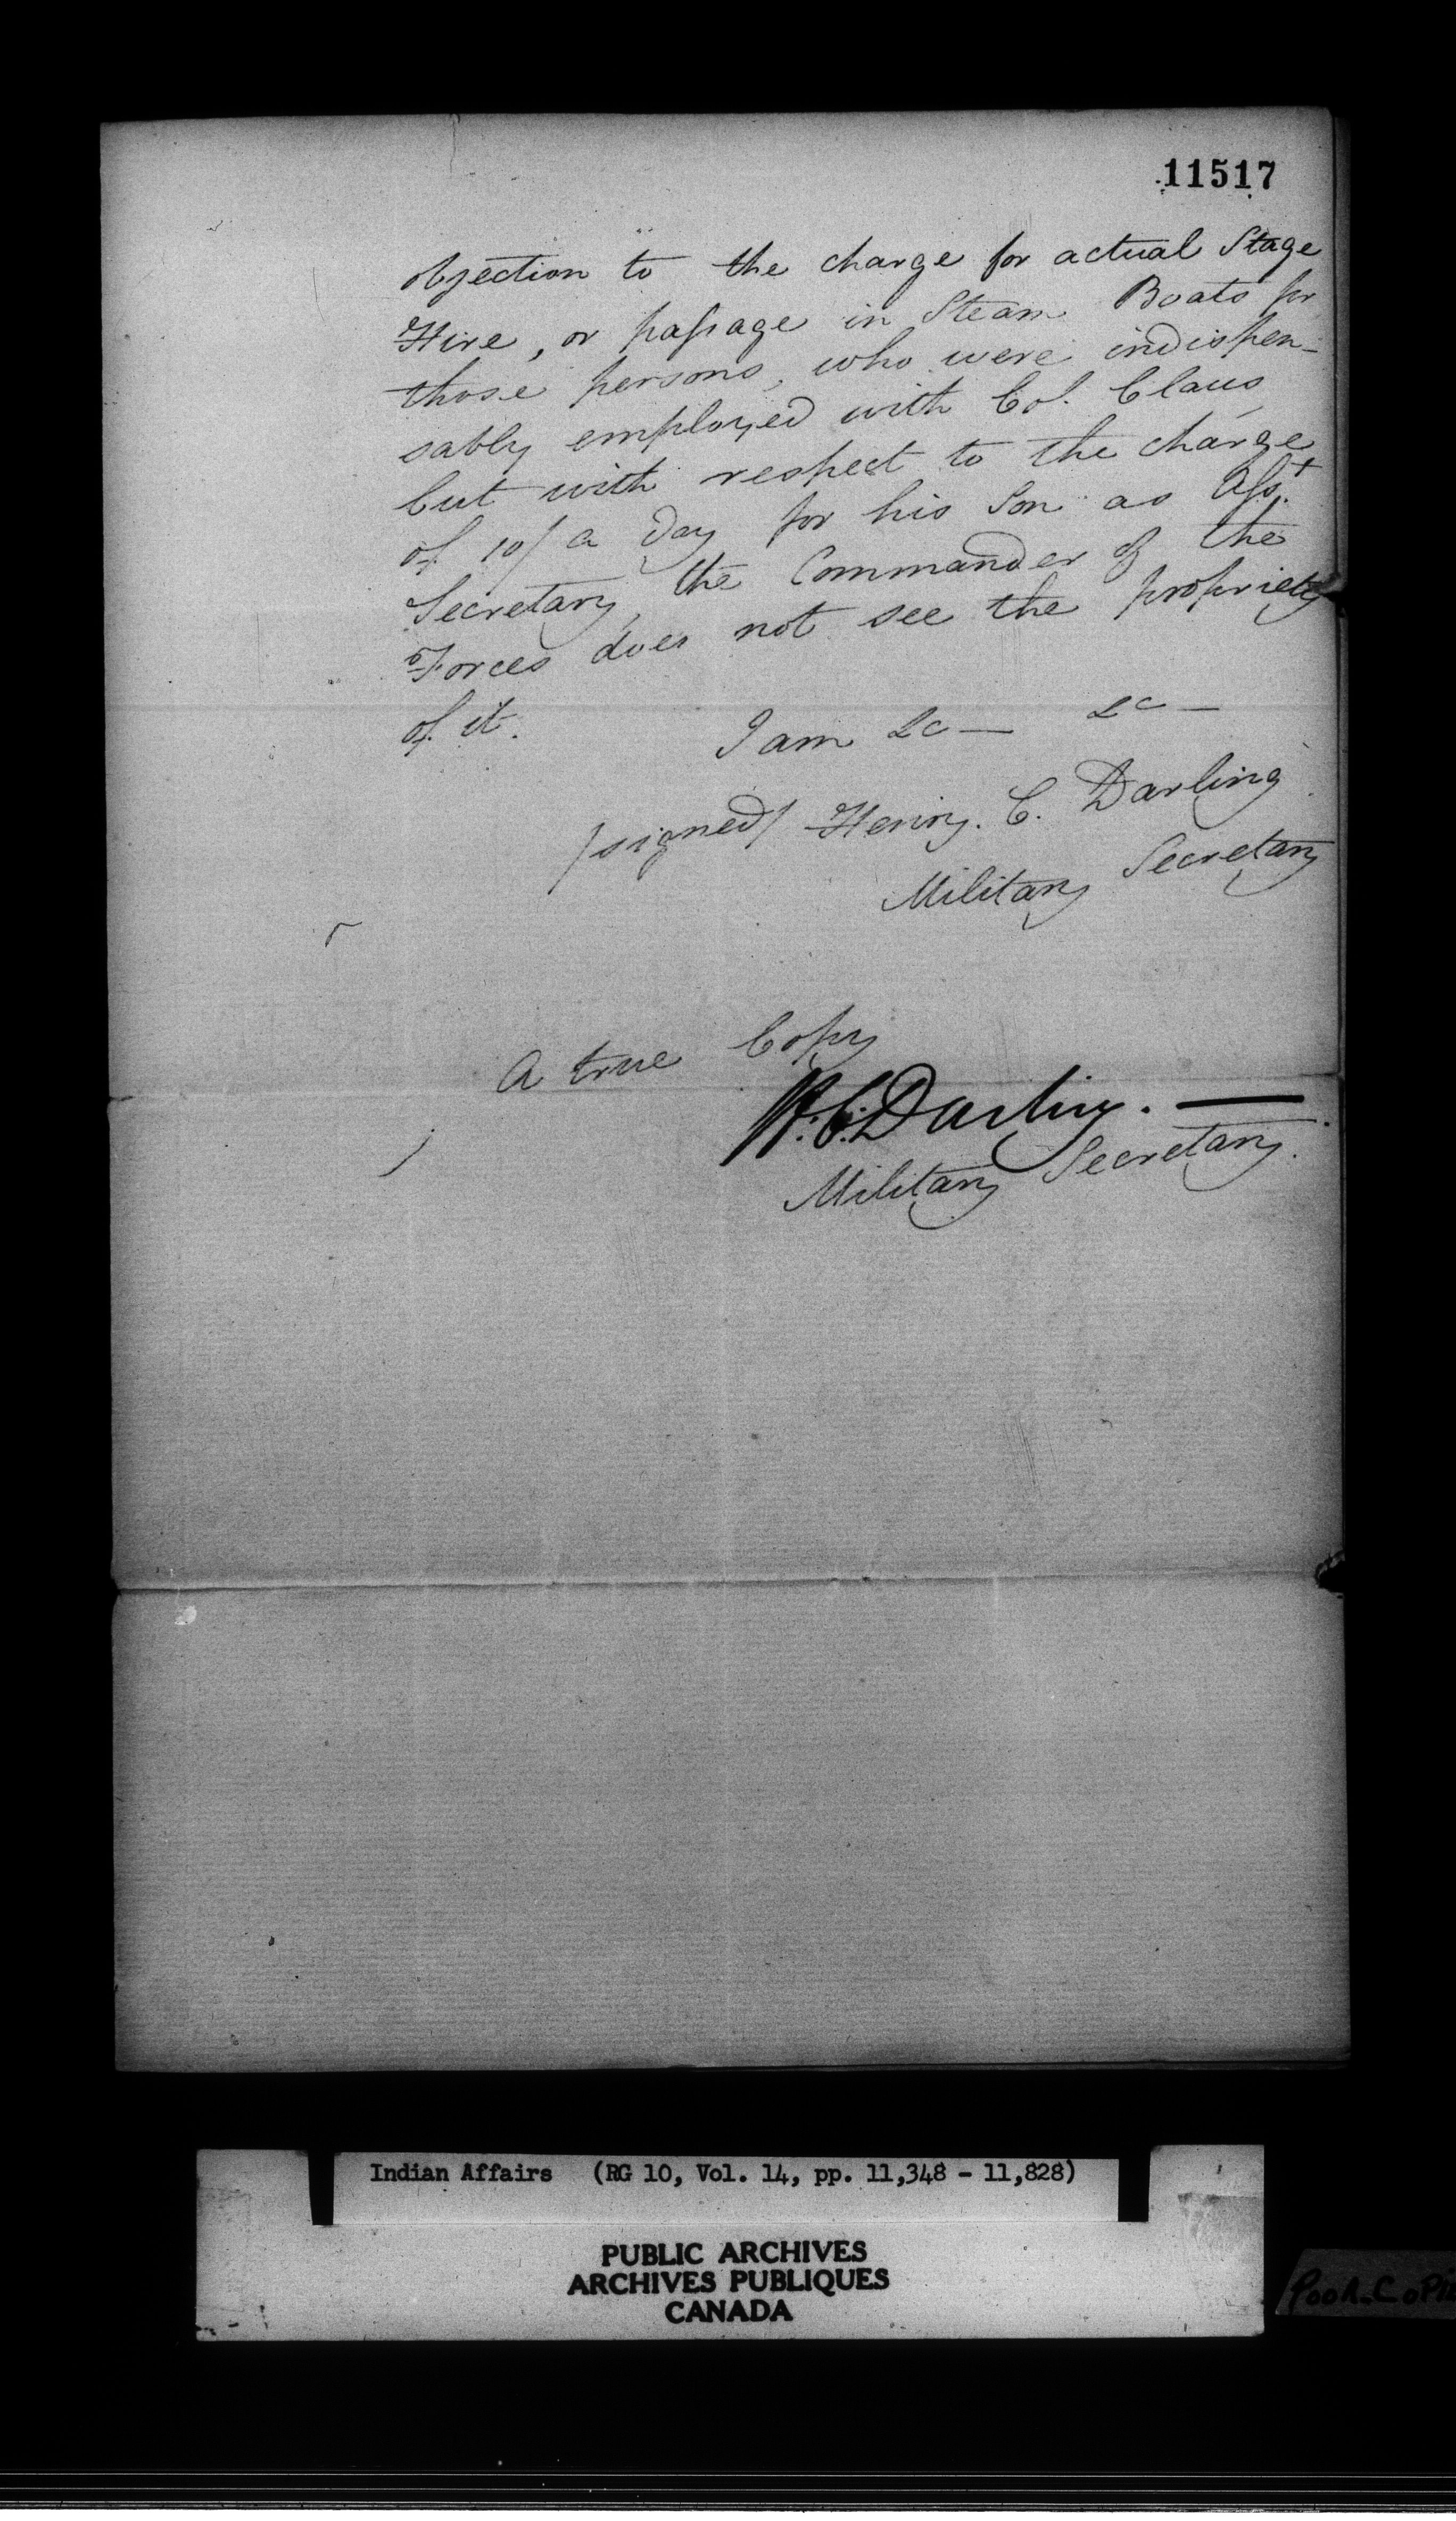 11517
objection to the charge for actual Stage
Hire, or passage in Steam Boats for
those persons, who were indispen-
sably employed with Col. Claus,
but with respect to the charge
of 10/ a day for his Son as Asst.
Secretary, the Commander of the
Forces does not see the propriety
of it.
I am &c — &c —
/signed/ Henry. C. Darling
Military Secretary
A true Copy
H. C. Darling. —
Military Secretary.
Indian Affairs (RG 10, Vol. 14, pp. 11,348 - 11,828)
PUBLIC ARCHIVES
ARCHIVES PUBLIQUES
CANADA